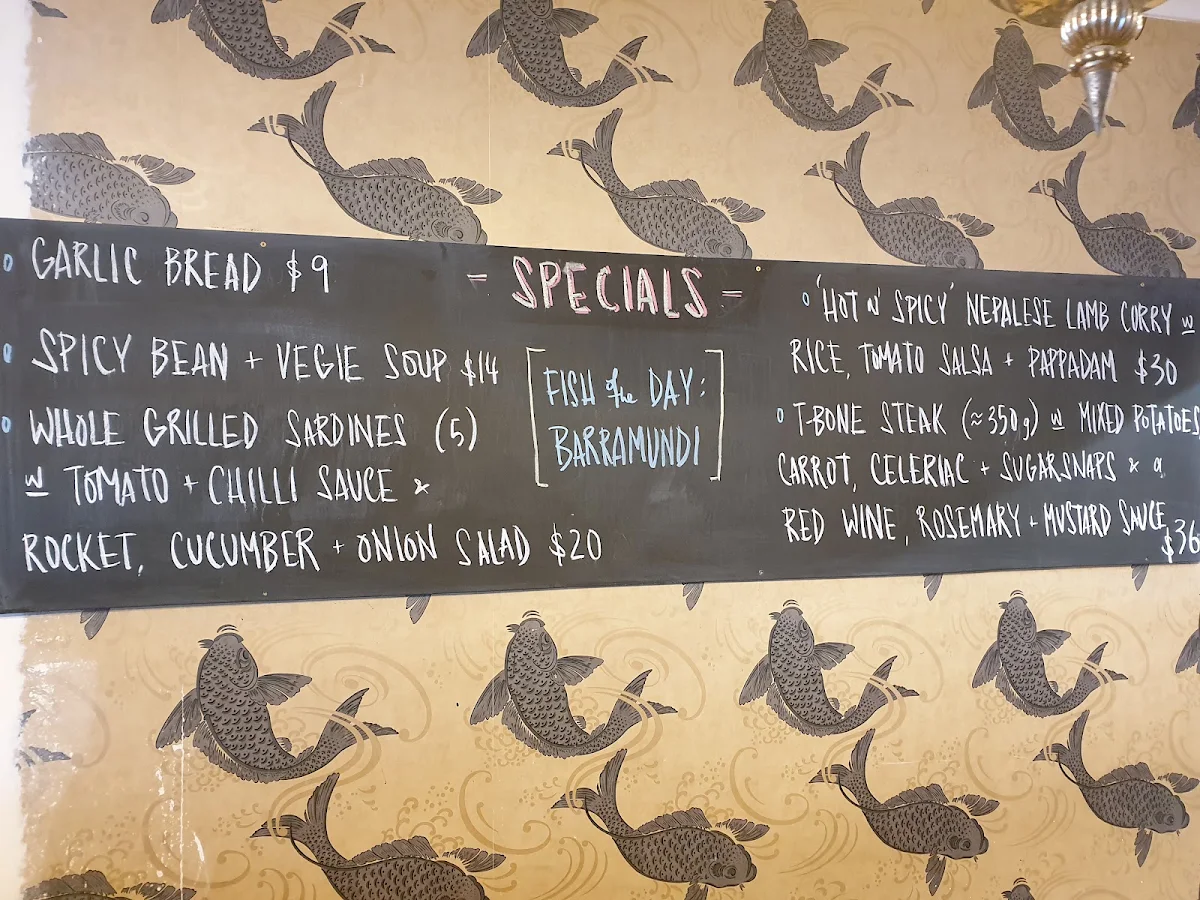 - SPECIALS -
o GARLIC BREAD $9
o SPICY BEAN + VEGIE SOUP $14
o WHOLE GRILLED SARDINES (5)
w TOMATO + CHILLI SAUCE &
ROCKET, CUCUMBER + ONION SALAD $20
[FISH of the DAY:
BARRAMUNDI]
o 'HOT N' SPICY' NEPALESE LAMB CURRY w
RICE, TOMATO SALSA + PAPPADAM $30
o T-BONE STEAK (≈350g) w MIXED POTATOES
CARROT, CELERIAC + SUGARSNAPS & a
RED WINE, ROSEMARY + MUSTARD SAUCE
$36